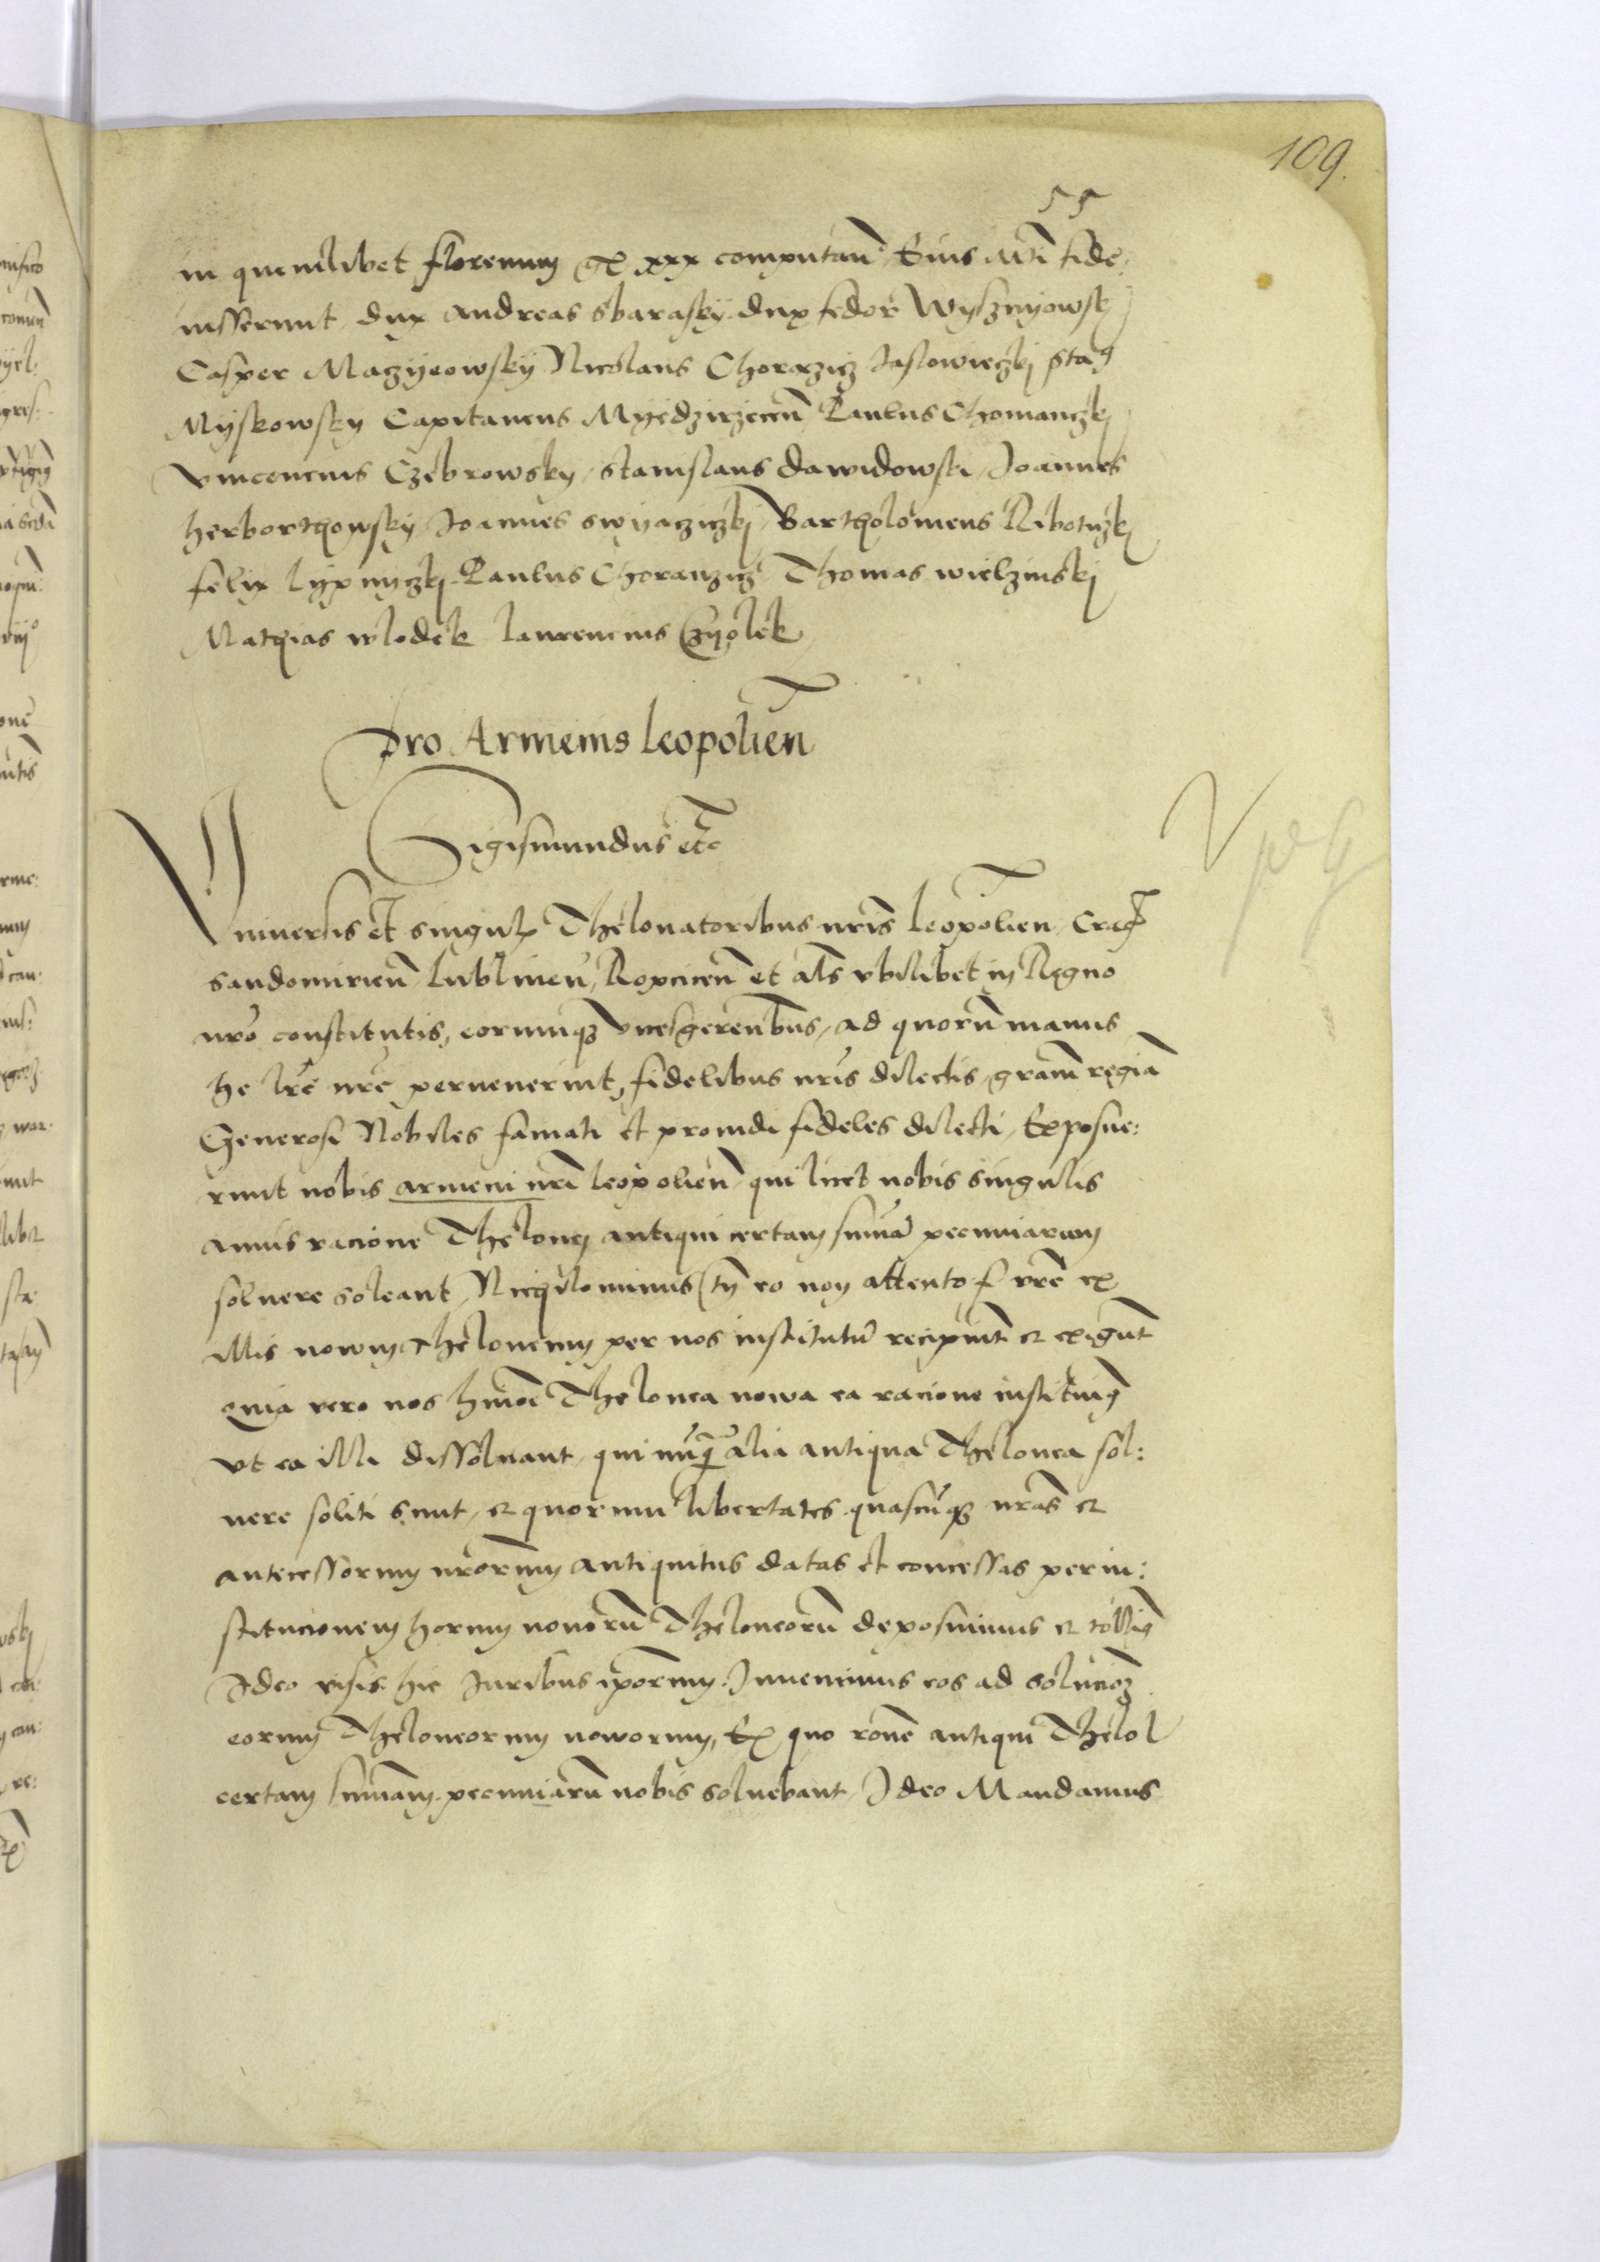 109.
55
in quemlibet florenum gr xxx computan̄ Eius Mti fide
iusserunt dux Andreas sbarasky dux fedor Wysznyowsky
Casper Maczyeowsky Nicolaus Chorązicz Jaslowieczkj Sta9
Myskowsky Capitaneus Myedzirzecen̄ Paulus Chomanczkj
Vincencius Czebrowsky, Stanislaus dawidowski Joannes
herborthowsky Joannes swyaczickj Bartholomeus Ribotuzkj
felix lypnyczkj Paulus Choranzicz Thomas wielzinskj
Mathias wlodek laurencius Czyolek
Pro Armenis leopolien̄
Sigismundus etc
Vniuersis et singul Thelonatoribus nr̄is leopolien, Crac
sandomirien̄ Lublinen̄, Ropcicen̄ et al̄s vbilibet in Regno
nr̄o constitutis, eorumqz vicesgerentibus, ad quorū manus
he lr̄e nr̄e peruenerint, fidelibus nr̄is dilectis, gram̄ regiā
Generosi Nobiles famati et prouidi fideles dilecti, Exposue:
runt nobis armeni nr̄i leopolien̄ qui licet nobis singulis
annis racione Thelonej antiqui certam sum̄ā pecuniarum
soluere soleant, Nichilominus tn̄ eo non attento f vr̄e ex
illis nowum Theloneum per nos institutū recipiunt et exigūt
Quia vero nos hmōi Thelonea nowa ea racione instituim9
vt ea illi dissoluant, qui nuq̄ alia antiqua Thelonea sol:
uere soliti sunt, et quorum libertates quascūqz nr̄as et
antecessorum nr̄orum antiquitus datas et concessas per in:
stitucionem horum nouorū Theloneorū deposuimus et tollim9
Ideo visis hic Juribus ip̄orum Inuenimus eos ad solucioz
eorum Theloneorum noworum, Ex quo rōne antiqui Thelol
certam sum̄am pecuniarū nobis soluebant, Ideo Mandamus